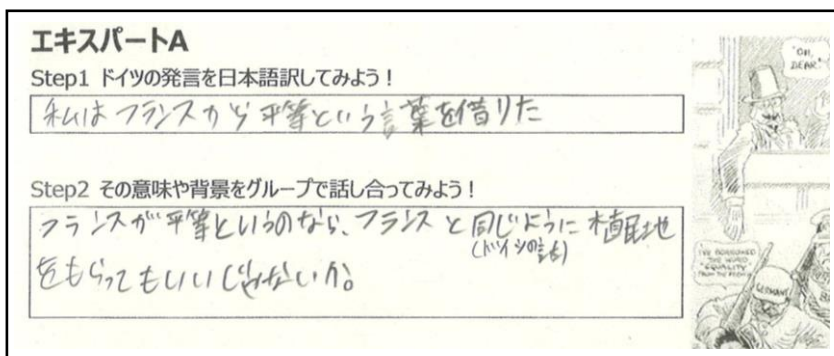 エキスパートA
Step1 ドイツの発言を日本語訳してみよう！
私は フランスから 平等という言葉を借りた
Step2 その意味や背景をグループで話し合ってみよう！
フランスが平等というのなら、フランスと同じように植民地
(ドイツの話)
をもらってもいいじゃないか。
"OH, DEAR"
"I'VE BORROWED
THE WORD
"EQUALITY"
FROM THE FRENCH
GERMANY